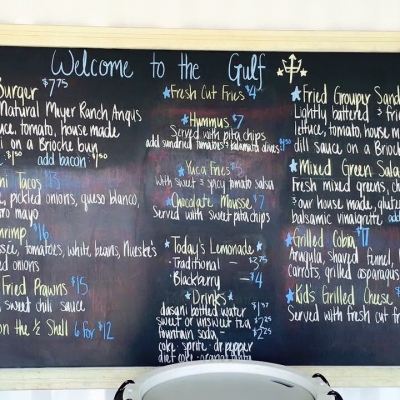 Welcome to the Gulf
Burger $7.75
Natural Meyer Ranch Angus
tomato, house made
on a Brioche bun
add bacon
Tacos
pickled onions, queso blanco,
mayo
$16
tomatoes, white beans, Nueske's
onions
Fried Prawns $15
sweet chili sauce
on the ½ Shell 6 for $12
Fresh Cut Fries $4
Hummus $7
Served with pita chips
add sundried tomatoes & kalamata olives
Yuca Fries
with sweet & spicy tomato salsa
Chocolate Mousse $7
Served with sweet pita chips
Today's Lemonade
Traditional — $3.75
Blackberry — $4
Drinks
dasani bottled water
sweet or unsweet tea
fountain soda $2.25
coke · sprite · dr pepper
diet coke
Fried Grouper Sand
Lightly battered & fri
lettuce, tomato, house m
dill sauce on a Brioch
Mixed Green Sala
Fresh mixed greens, ch
our house made, glute
balsamic vinaigrette add
Grilled Cobia
Arugula, shaved fennel,
carrots, grilled asparagus
Kid's Grilled Cheese
Served with fresh cut fr